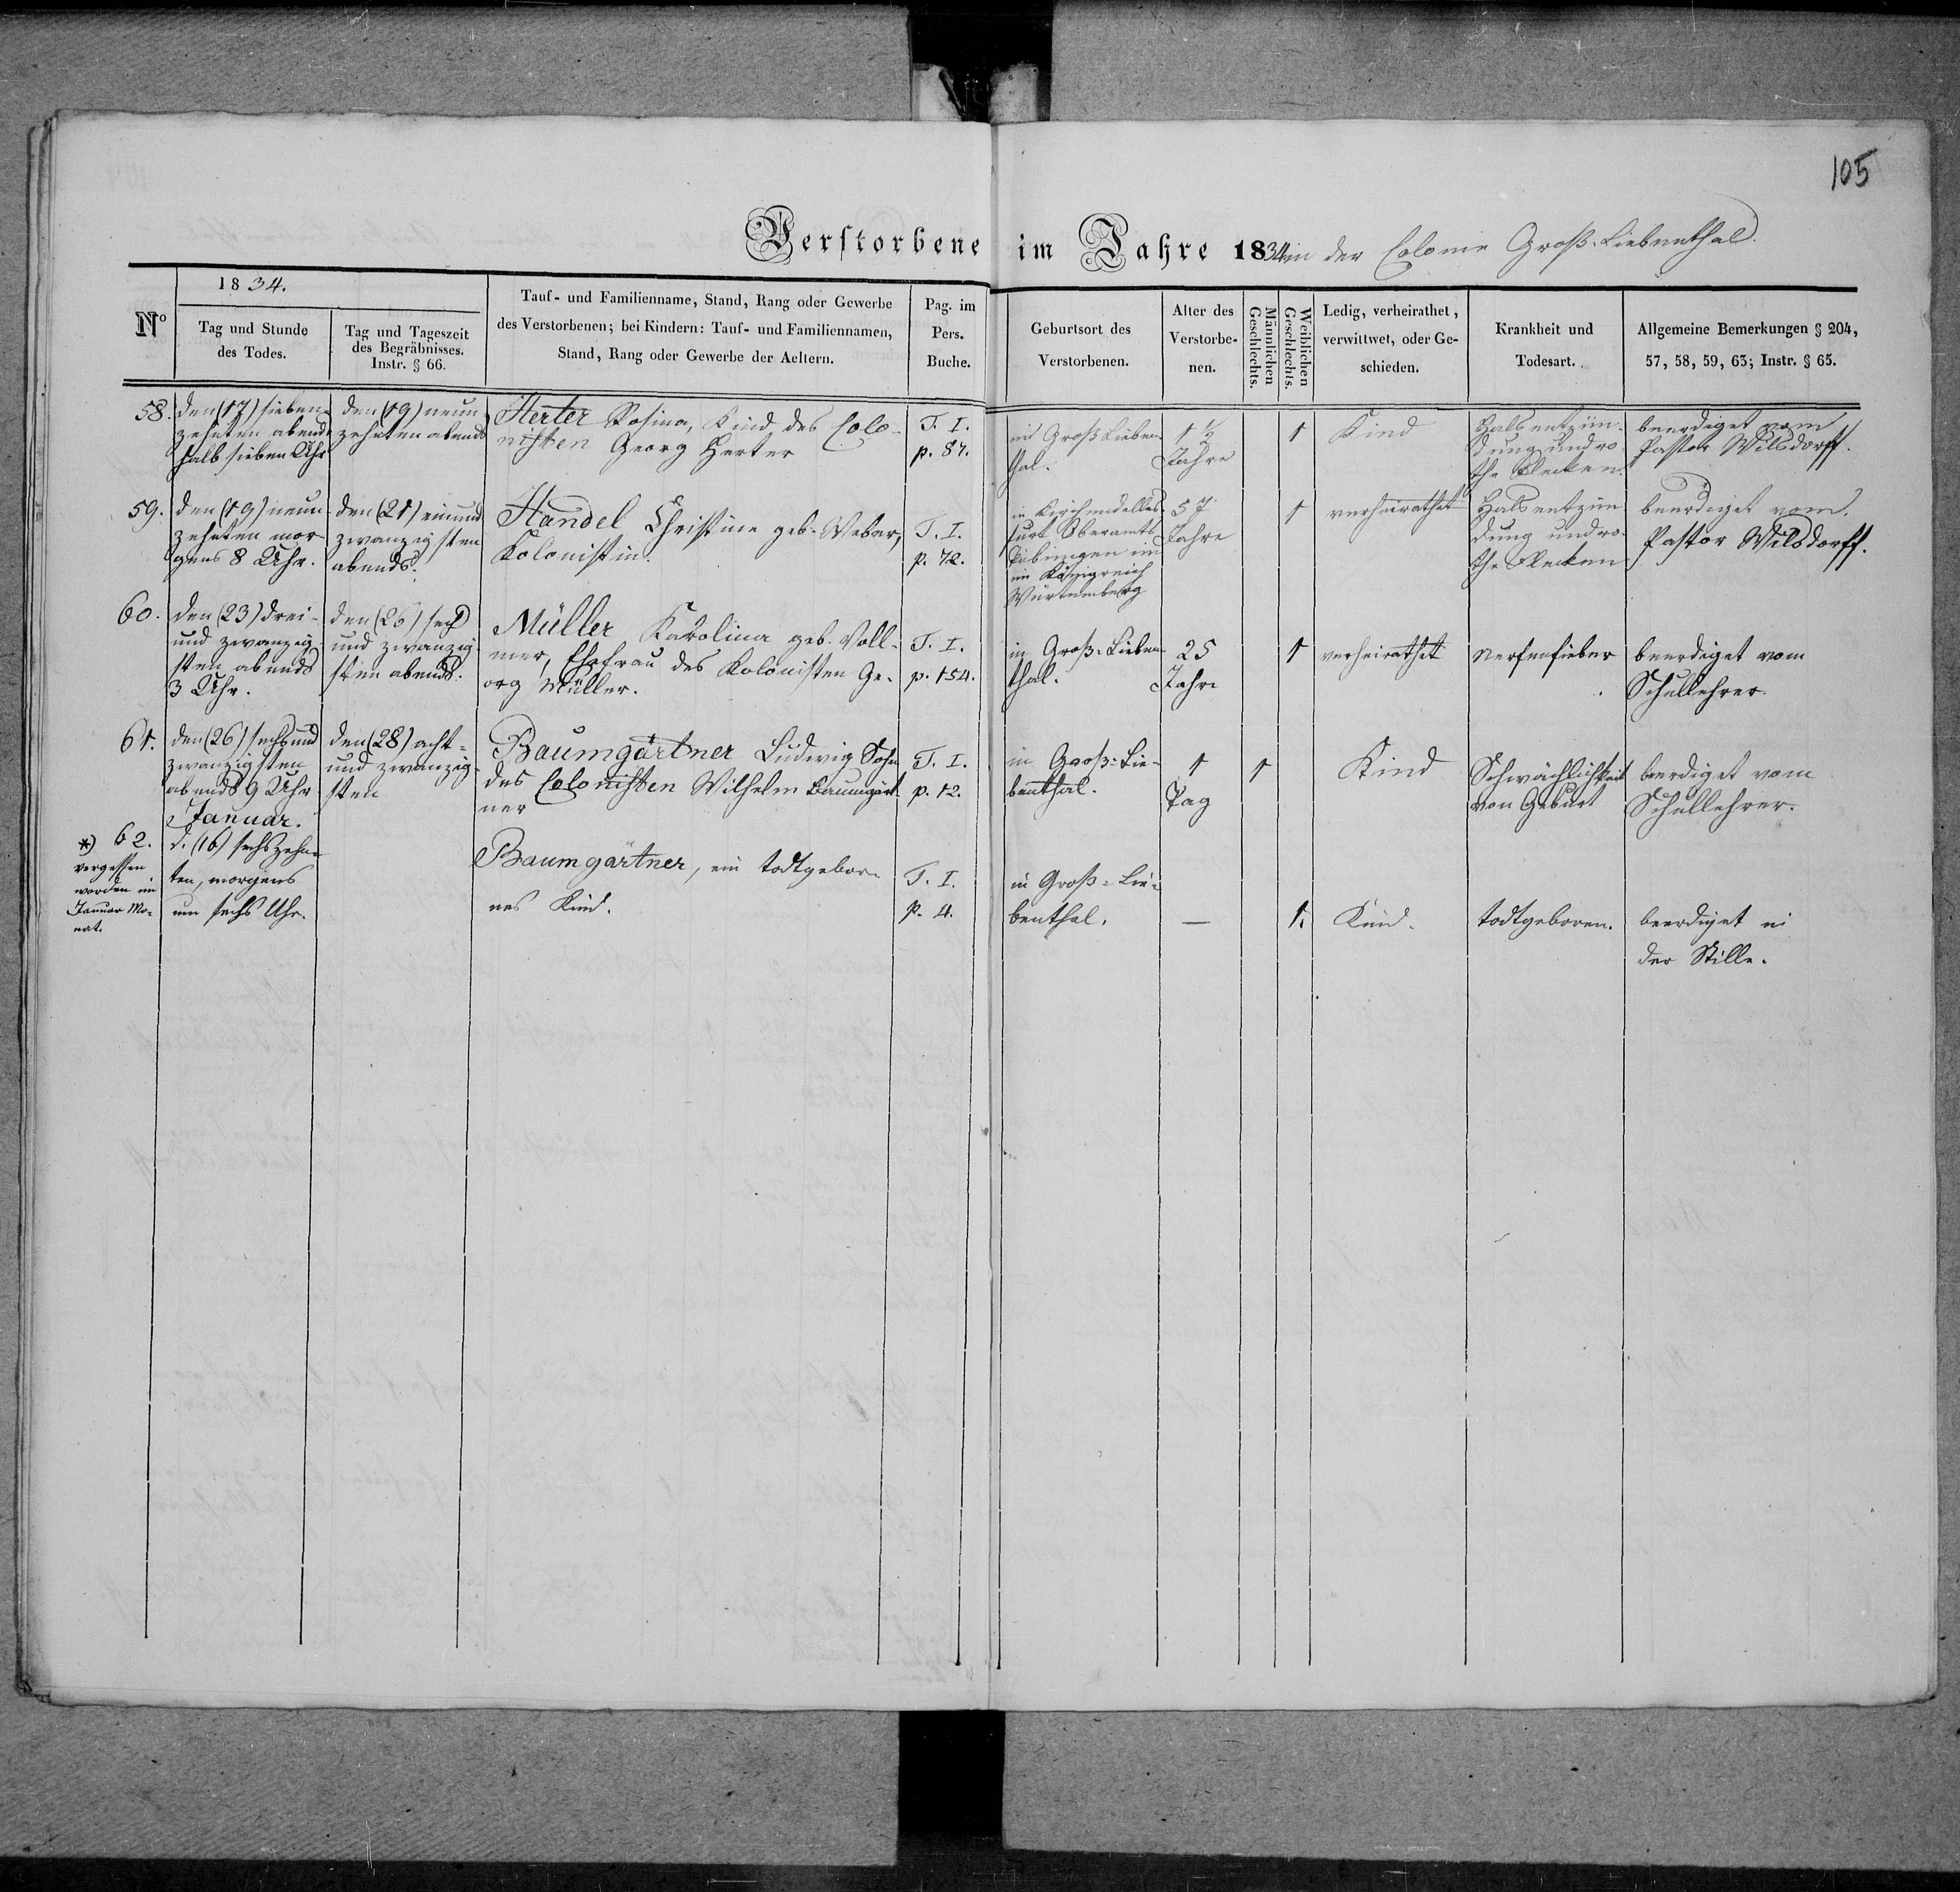 105
Verstorbene im Jahre 1834 in der Colonie Groß-Liebenthal.
No
1834.
Tag und Stunde
des Todes.
Tag und Tageszeit
des Begräbnisses.
Instr. § 66.
Tauf- und Familienname, Stand, Rang oder Gewerbe
des Verstorbenen; bei Kindern: Tauf- und Familiennamen,
Stand, Rang oder Gewerbe der Aeltern.
Pag. im
Pers.
Buche.
Geburtsort des
Verstorbenen.
Alter des
Verstorbe-
nen.
Männlichen
Geschlechts.
Weiblichen
Geschlechts.
Ledig, verheirathet,
verwittwet, oder Ge-
schieden.
Krankheit und
Todesart.
Allgemeine Bemerkungen § 204,
57, 58, 59, 63; Instr. § 65.
58.
den (17) sieben-
zehnten abends
halb sieben Uhr
den (19) neun
zehnten abends
Herter Rosina, Kind des Colo-
nisten Georg Herter
T. I.
p. 87.
in Groß Lieben-
thal.
1 ½
Jahre
1
Kind
Halsentzün-
dung und ro-
the Flecken.
beerdiget vom
Pastor Wilsdorff.
59.
den (19) neun
zehnten mor-
gens 8 Uhr.
den (21) einund
zwanzigsten
abends.
Handel Christine geb. Weber,
Kolonistin.
T. I.
p. 72.
in
furt Oberamts
Tübingen im
im Königreich
Würtemberg
57
Jahre
1
verheirathet
Halsentzün
dung und ro-
the Flecken
beerdiget vom
Pastor Wilsdorff.
60.
den (23) drei-
und zwanzig-
sten abends
3 Uhr.
den (26) sechs
und zwanzig-
sten abends.
Müller Karolina geb. Voll-
mer, Ehefrau des Kolonisten Ge-
org Müller.
T. I.
p. 154.
in Groß-Lieben-
thal.
25
Jahre
1
verheirathet
Nerfenfieber
beerdiget vom
Schullehrer.
61.
den (26) sechsund
zwanzigsten
abends 9 Uhr
den (28) acht-
und zwanzig-
sten
Baumgärtner Ludwig Sohn
des Colonisten Wilhelm Baumgärt-
ner
T. I.
p. 12.
in Groß-Lie-
benthal.
1
Tag
1
Kind
Schwächlichkeit
von Geburt
beerdiget vom
Schullehrer.
*) 62.
vergessen
worden im
Januar Mo-
nat.
Januar.
d. (16) sechszehn-
ten, morgens
um sechs Uhr.
Baumgärtner, ein todtgebor-
nes Kind.
T. I.
p. 4.
in Groß-Lie-
benthal.
—
1.
Kind.
todtgeboren.
beerdiget in
der Stille.